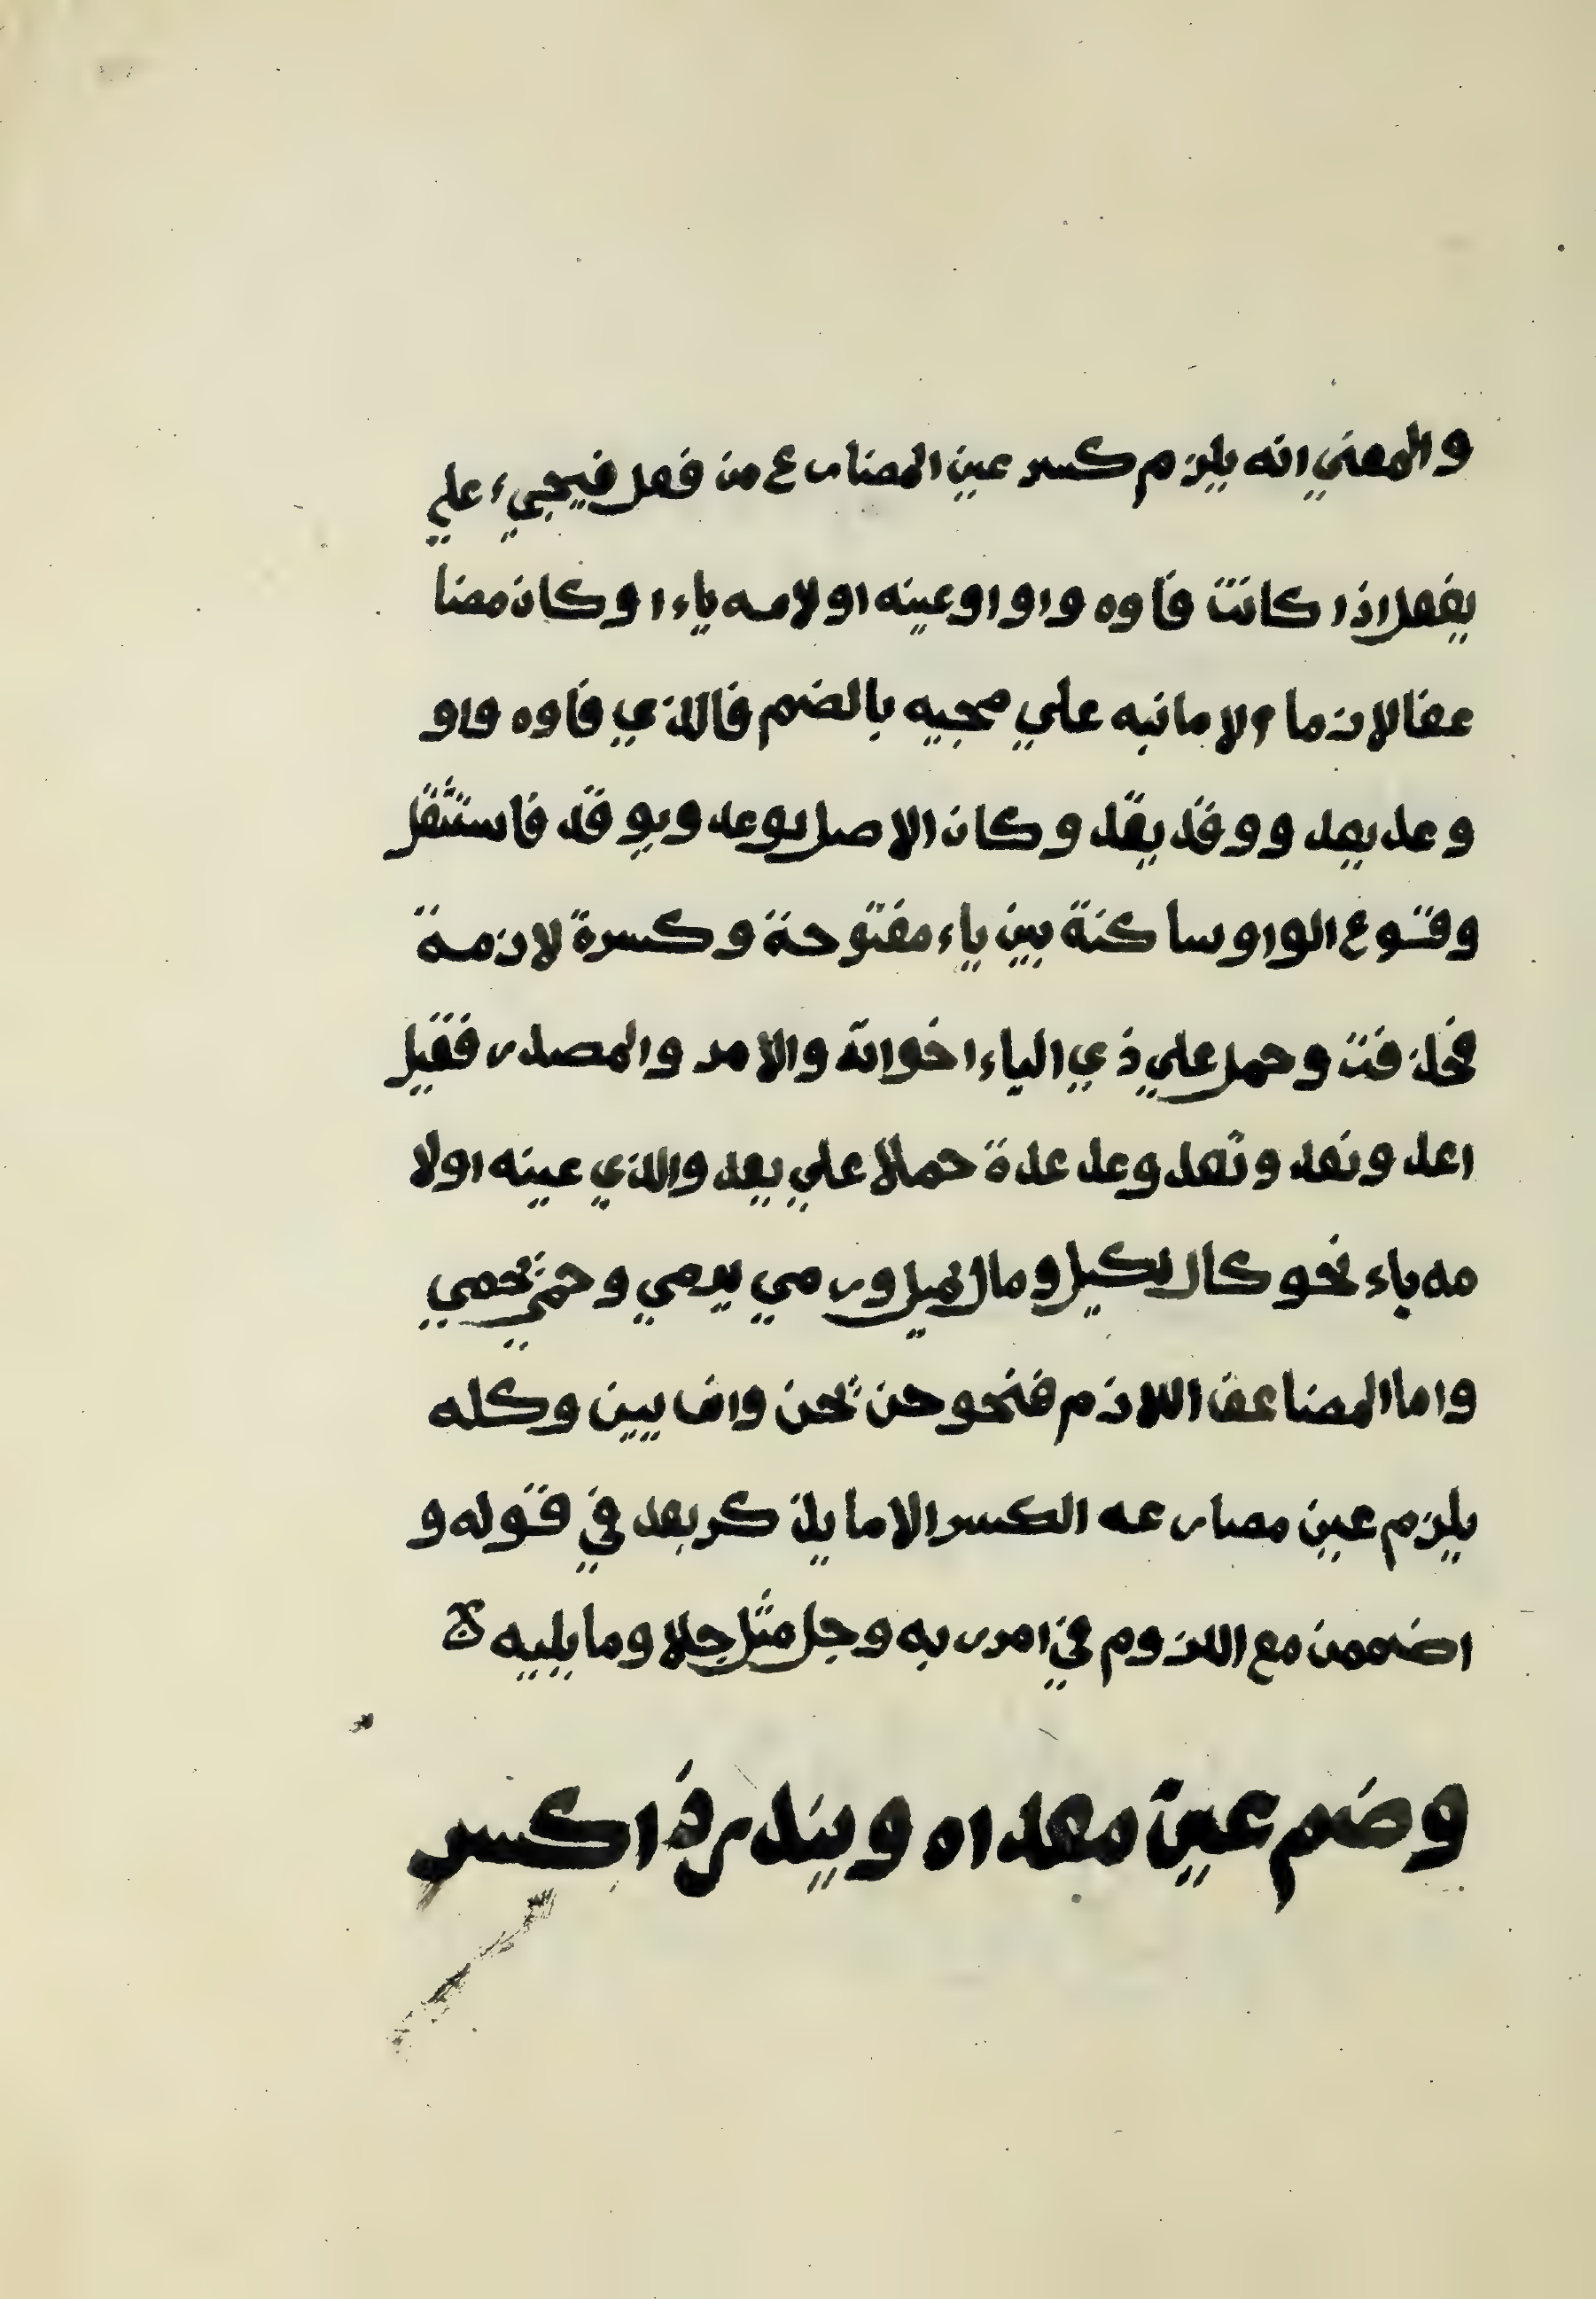 والمعني انه يلزم كسر عين المضارع من فعل فيجيء علي
يفعل اذا كانت فاوه واو اوعينه او لامه ياء او كان مضا
عفا لازما والا مانبه علي مجيه بالضم فالذي فاوه واو
وعد يعد ووقد يقد وكان الاصل يوعد ويوقد فاستثقل
وقوع الواو ساكنة بين ياء مفتوحة وكسرة لازمة
فحذفت وحمل علي ذي الياء اخواته والامر والمصدر فقيل
اعد ونعد وتعد وعد عدة حملا علي يعد والذي عينه اولا
مه ياء نحو كال يكيل ومال يميل ورمي يرمي وحمي يحمي
واما المضاعف اللازم فنحو حن يحن وان يين وكله
يلزم عين مضارعه الكسر الا ما يذكر بعد في قوله و
اضممن مع اللزوم في امرر به وجل مثل جلا وما يليه
وضم عين معداه ويندر ذا كسر